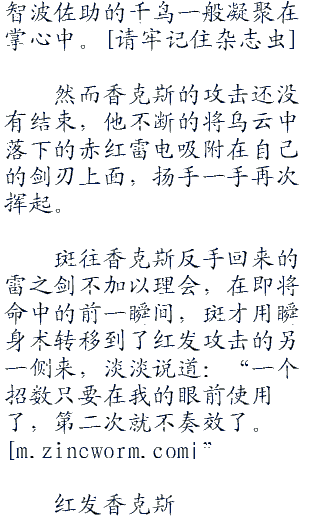 智波佐助的千鸟一般凝聚在
掌心中。[请牢记住杂志虫]
然而香克斯的攻击还没
有结束，他不断的将乌云中
落下的赤红雷电吸附在自己
的剑刃上面，扬手一手再次
挥起。
斑往香克斯反手回来的
雷之剑不加以理会，在即将
命中的前一瞬间，斑才用瞬
身术转移到了红发攻击的另
一侧来，淡淡说道：“一个
招数只要在我的眼前使用
了，第二次就不奏效了。
[m.zincworm.com¡”
红发香克斯